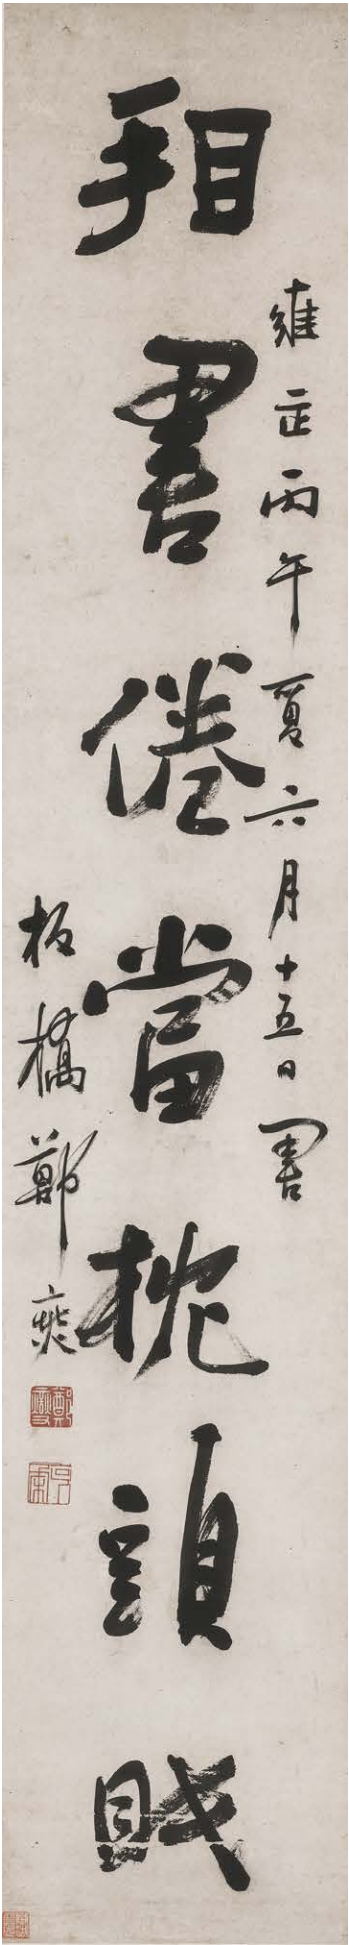 雍正丙午夏六月十五日書
書倦當枕頭眠
板橋鄭燮
鄭燮
克柔